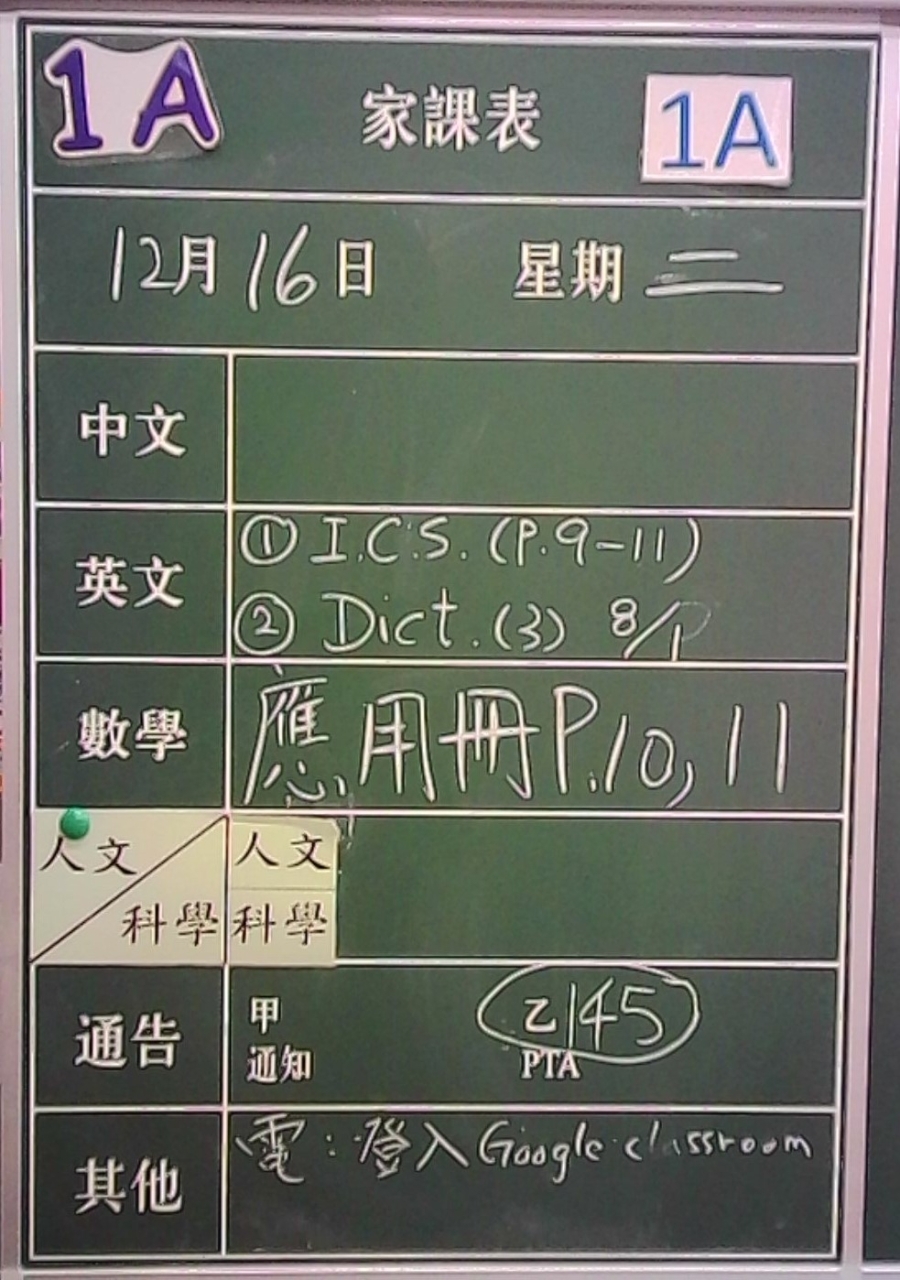 1A 家課表 1A
12月16日 星期二
中文
英文 ① I.C.S. (P.9-11)
② Dict. (3) 8/1
數學 應用冊P.10, 11
人文 人文
科學 科學
通告 甲 乙145
通知 PTA
其他 電：登入Google classroom